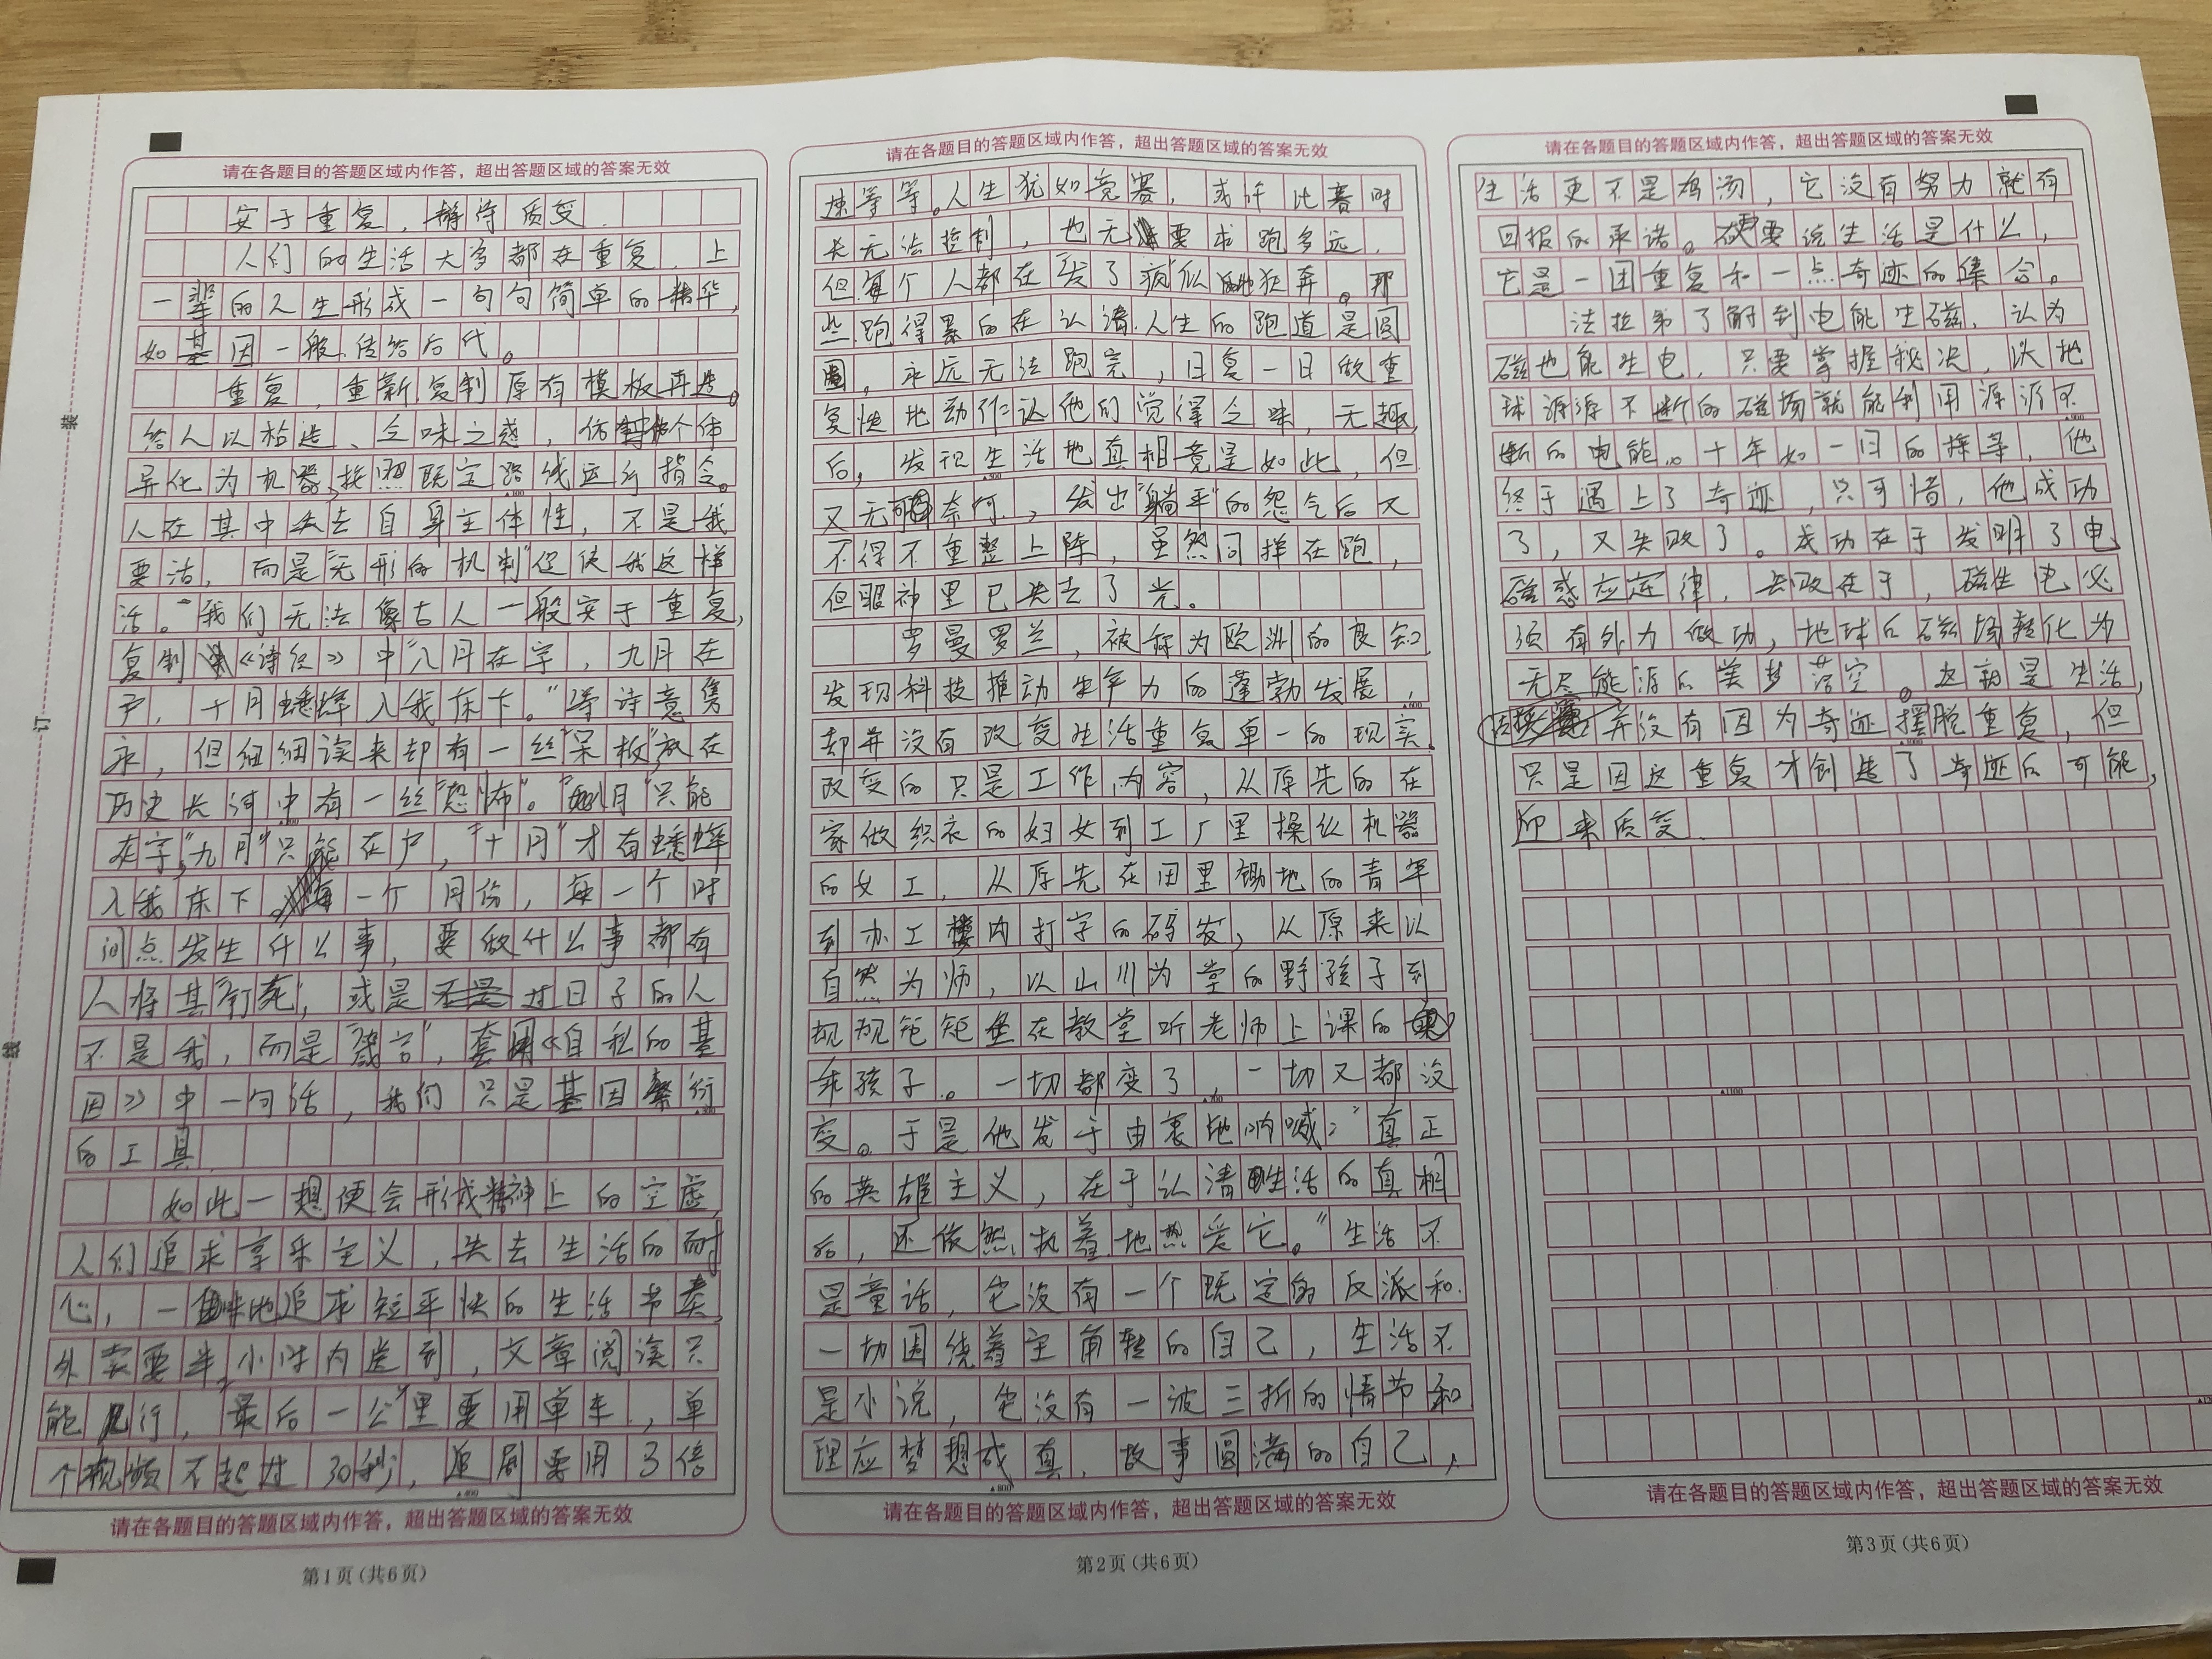 请在各题目的答题区域内作答，超出答题区域的答案无效
安于重复，静待质变.
人们的生活大多都在重复，上
一辈的人生形成一句句简单的精华,
如基因一般传给后代。
重复，重新复制原有模板再造。
给人以枯造、乏味之感，仿 个体
异化为机器,按照既定路线运行指令。
人在其中失去自身主体性，不是我
要活，而是“无形的机制”促使我这样
活。“我们无法像古人一般安于重复,
复制《诗经》中“八月在宇，九月在
户，十月蟋蟀入我床下。”等诗意隽
永，但细细读来却有一丝“呆板”放在
历史长河中有一丝“恐怖”。“八月”只能
在宇,“九月”只能在户，“十月”才有蟋蟀
入我床下，每一个月份，每一个时
间点发生什么事，要做什么事都有
人将其“钉死”，或是过日子的人
不是我，而是“箴言”，套用《自私的基
因》中一句话，我们只是基因繁衍
的工具.
如此一想便会形成精神上的空虚,
人们追求享乐主义，失去生活的耐
心，一味地追求短平快的生活节奏,
外卖要半小时内送到，文章阅读只
能几行，最后一公里要用单车，单
个视频不超过30秒，追剧要用3倍
请在各题目的答题区域内作答，超出答题区域的答案无效
第1页(共6页)
请在各题目的答题区域内作答，超出答题区域的答案无效
速等等。人生犹如竞赛，或许比赛时
长无法控制，也无要求跑多远，
但每个人都在“发了疯”似地狂奔。那
些跑得累的在认清人生的跑道是圆
圈，永远无法跑完，日复一日做重
复性地动作让他们觉得乏味，无趣,
后，发现生活地真相竟是如此，但
又无可奈何，发出“躺平”的怨气后又
不得不重整上阵，虽然同样在跑，
但眼神里已失去了光。
罗曼罗兰，被称为欧洲的良知,
发现科技推动生产力的蓬勃发展，
却并没有改变生活重复单一的现实.
改变的只是工作内容，从原先的在
家做织衣的妇女到工厂里操纵机器
的女工，从原先在田里锄地的青年
到办工楼内打字的码农，从原来以
自然为师，以山川为堂的野孩子到
规规矩矩坐在教堂听老师上课的
乖孩子。一切都变了，一切又都没
变。于是他发于由衷地呐喊：“真正
的英雄主义，在于认清生活的真相
后，还依然执着地热爱它。”生活不
是童话，它没有一个既定的反派和
一切围绕着主角转的自己，生活不
是小说，它没有一波三折的情节和
理应梦想成真，故事圆满的自己，
请在各题目的答题区域内作答，超出答题区域的答案无效
第2页(共6页)
请在各题目的答题区域内作答，超出答题区域的答案无效
生活更不是鸡汤，它没有努力就有
回报的承诺。硬要说生活是什么，
它是一团重复和一点奇迹的集合。
法拉第了解到电能生磁，认为
磁也能生电，只要掌握秘决，以地
球源源不断的磁场就能利用源源不
断的电能。十年如一日的探等，他
终于遇上了奇迹，只可惜，他成功
了，又失败了。成功在于发明了电
磁感应定律，失败在于，磁生电必
须有外力做功，地球的磁场转化为
无尽能源的美梦落空。这就是生活,
并没有因为奇迹摆脱重复，但
只是因这重复才创造了奇迹的可能,
迎来质变.
请在各题目的答题区域内作答，超出答题区域的答案无效
第3页(共6页)
装
订
线